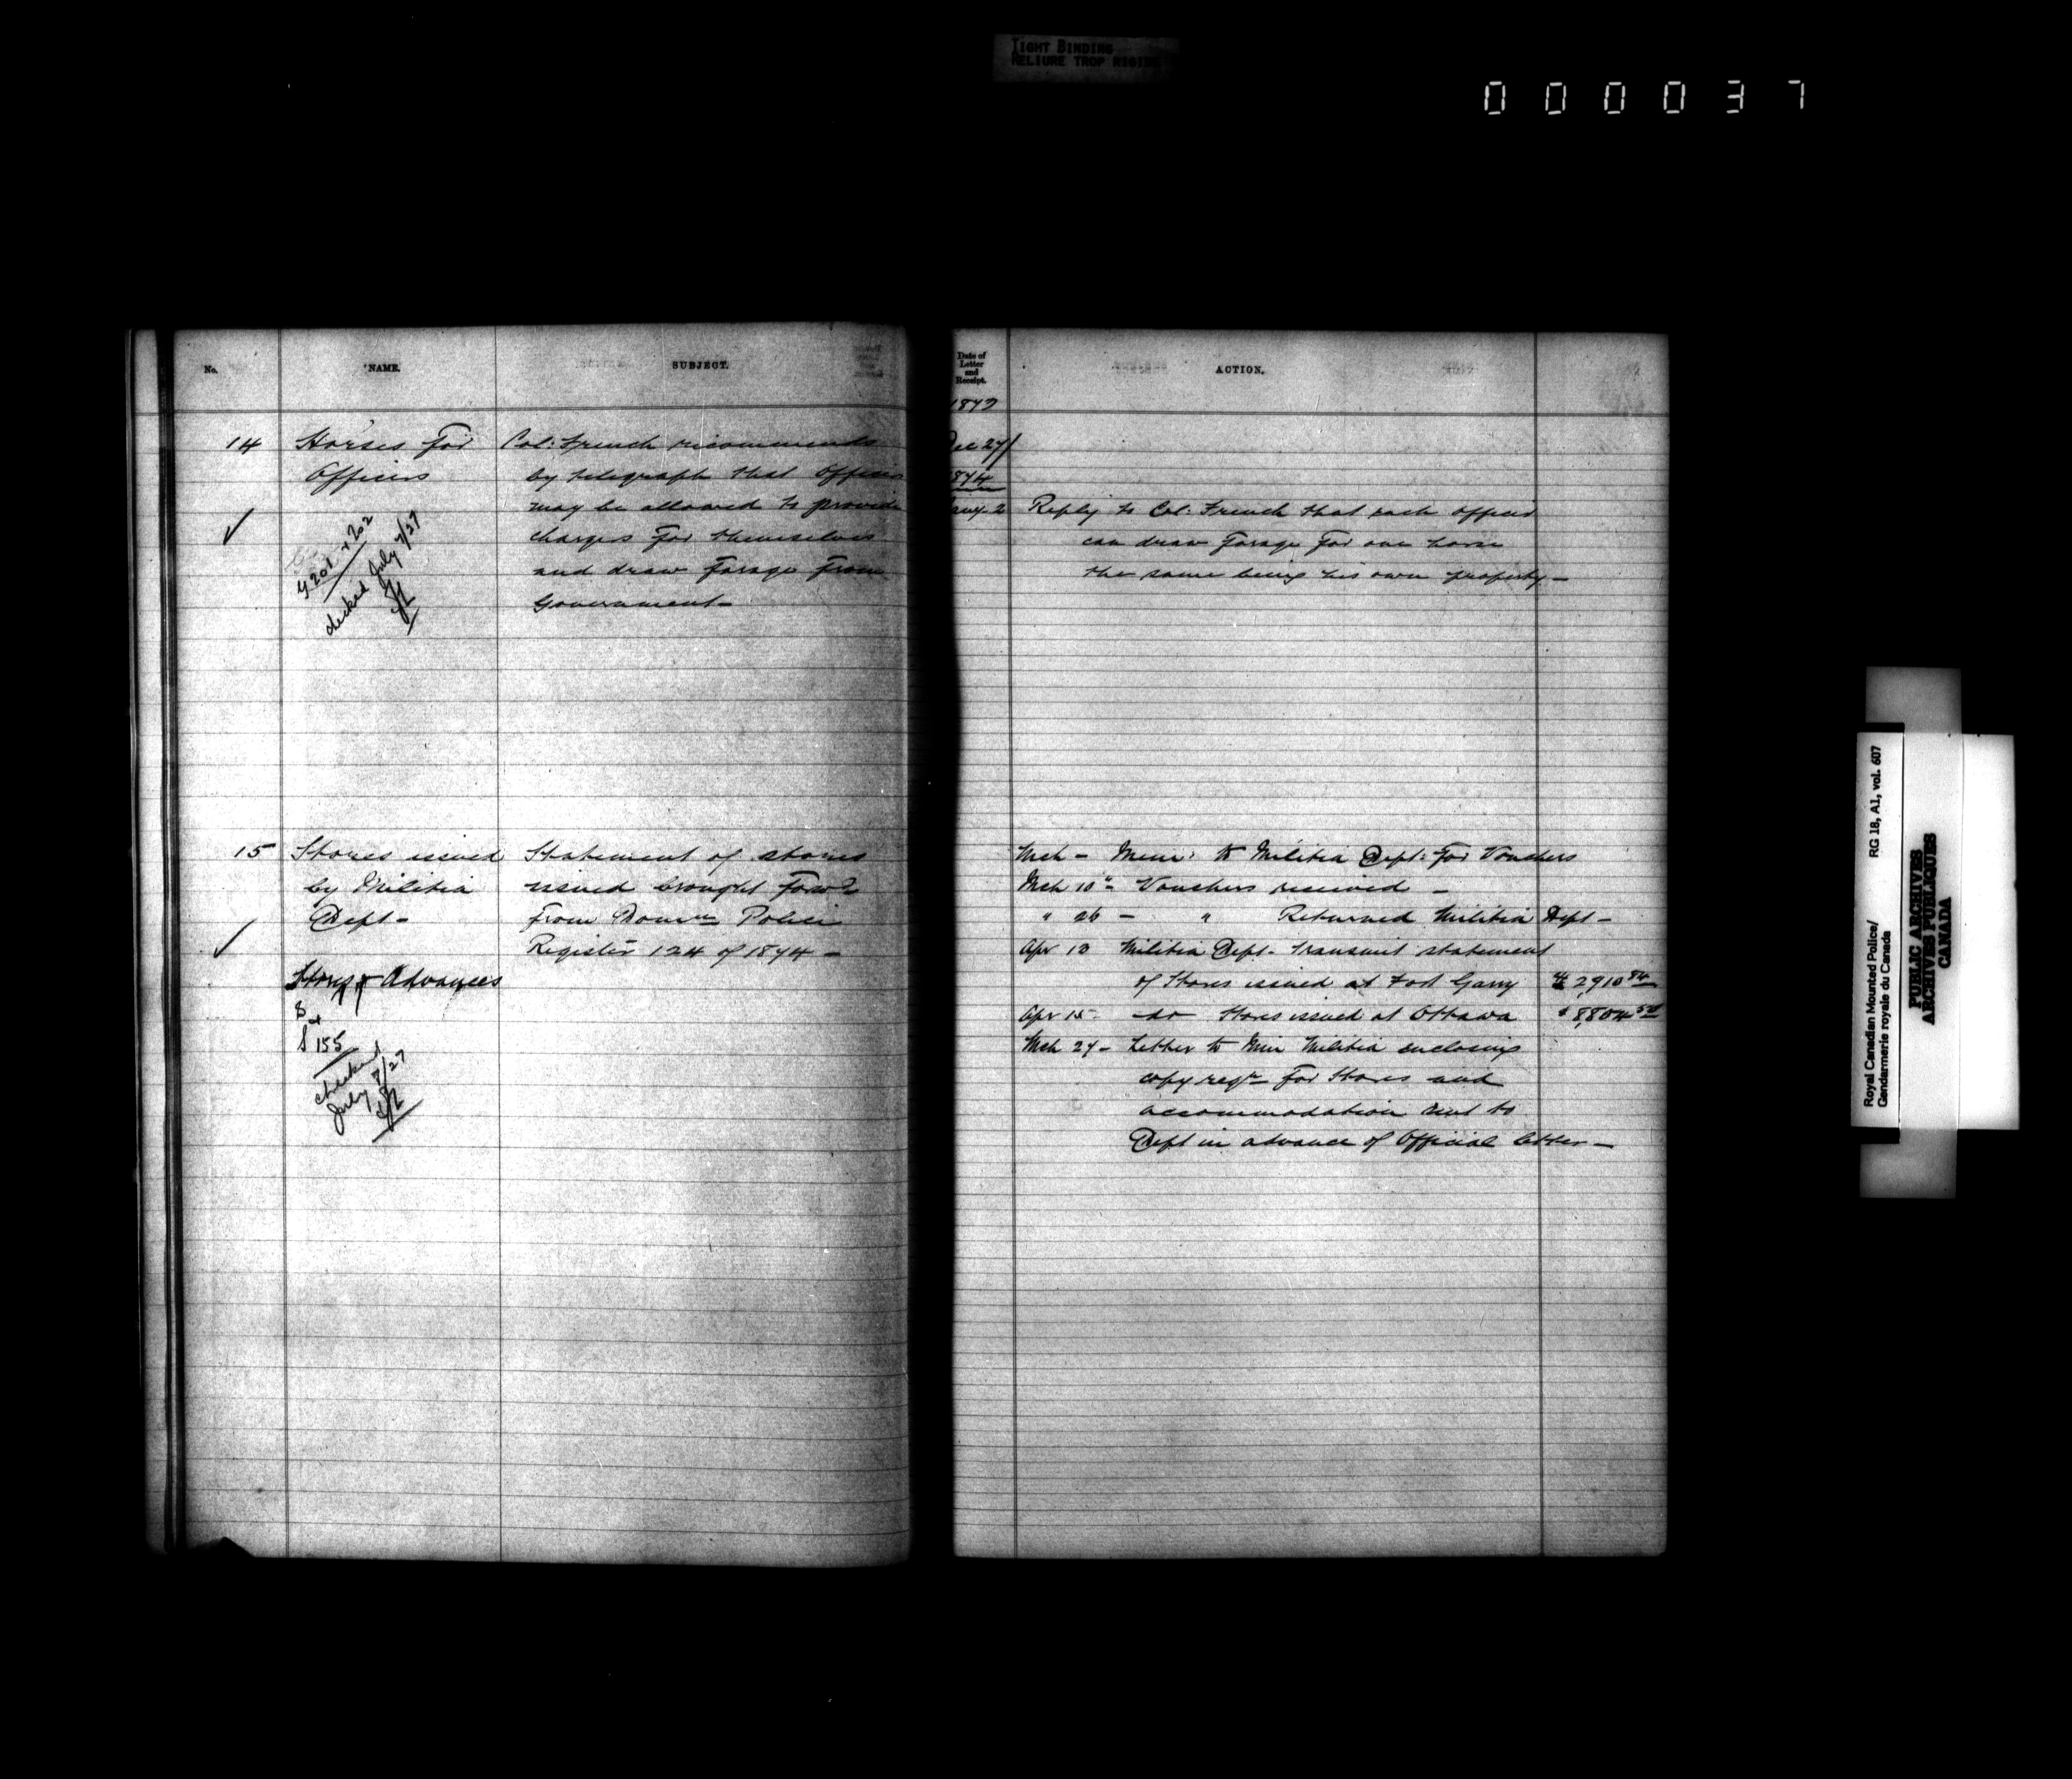 TIGHT BINDING
RELIURE TROP RIGIDE
000037
No.
NAME.
SUBJECT.
14
Horses for
Officers
Col: French recommends
by telegraph that Officers
may be allowed to provide
chargers for themselves
and draw Forage From
Government-
G 201 + 202
checked July 7/27
15
Stores issued
by Militia
Dept-
Stores & Advances
S 155
checked
July 7/27
Statement of stores
issued brought Forwd
From Domn Police
Register 124 of 1874 -
Date of
Letter
and
Receipt.
ACTION.
1873
Dec 27/
1874
Jany. 2 Reply to Col: French that each officer
can draw Forage For one horse
the same being his own property -
Mch - Mem: to Militia Dept: For Vouchers
Mch 10" - Vouchers received -
" 26 - " Returned Militia Dept -
Apr 13 Militia Dept- transmit statement
of Stores issued at Fort Garry $2,910 84
Apr 15 - do Stores issued at Ottawa $8,804
Mch 27 - Letter to Min Militia enclosing
copy reqn For Stores and
accommodation sent to
Dept in advance of Official letter -
Royal Canadian Mounted Police/ RG 18, A1, vol. 607
Gendarmerie royale du Canada
PUBLIC ARCHIVES
ARCHIVES PUBLIQUES
CANADA